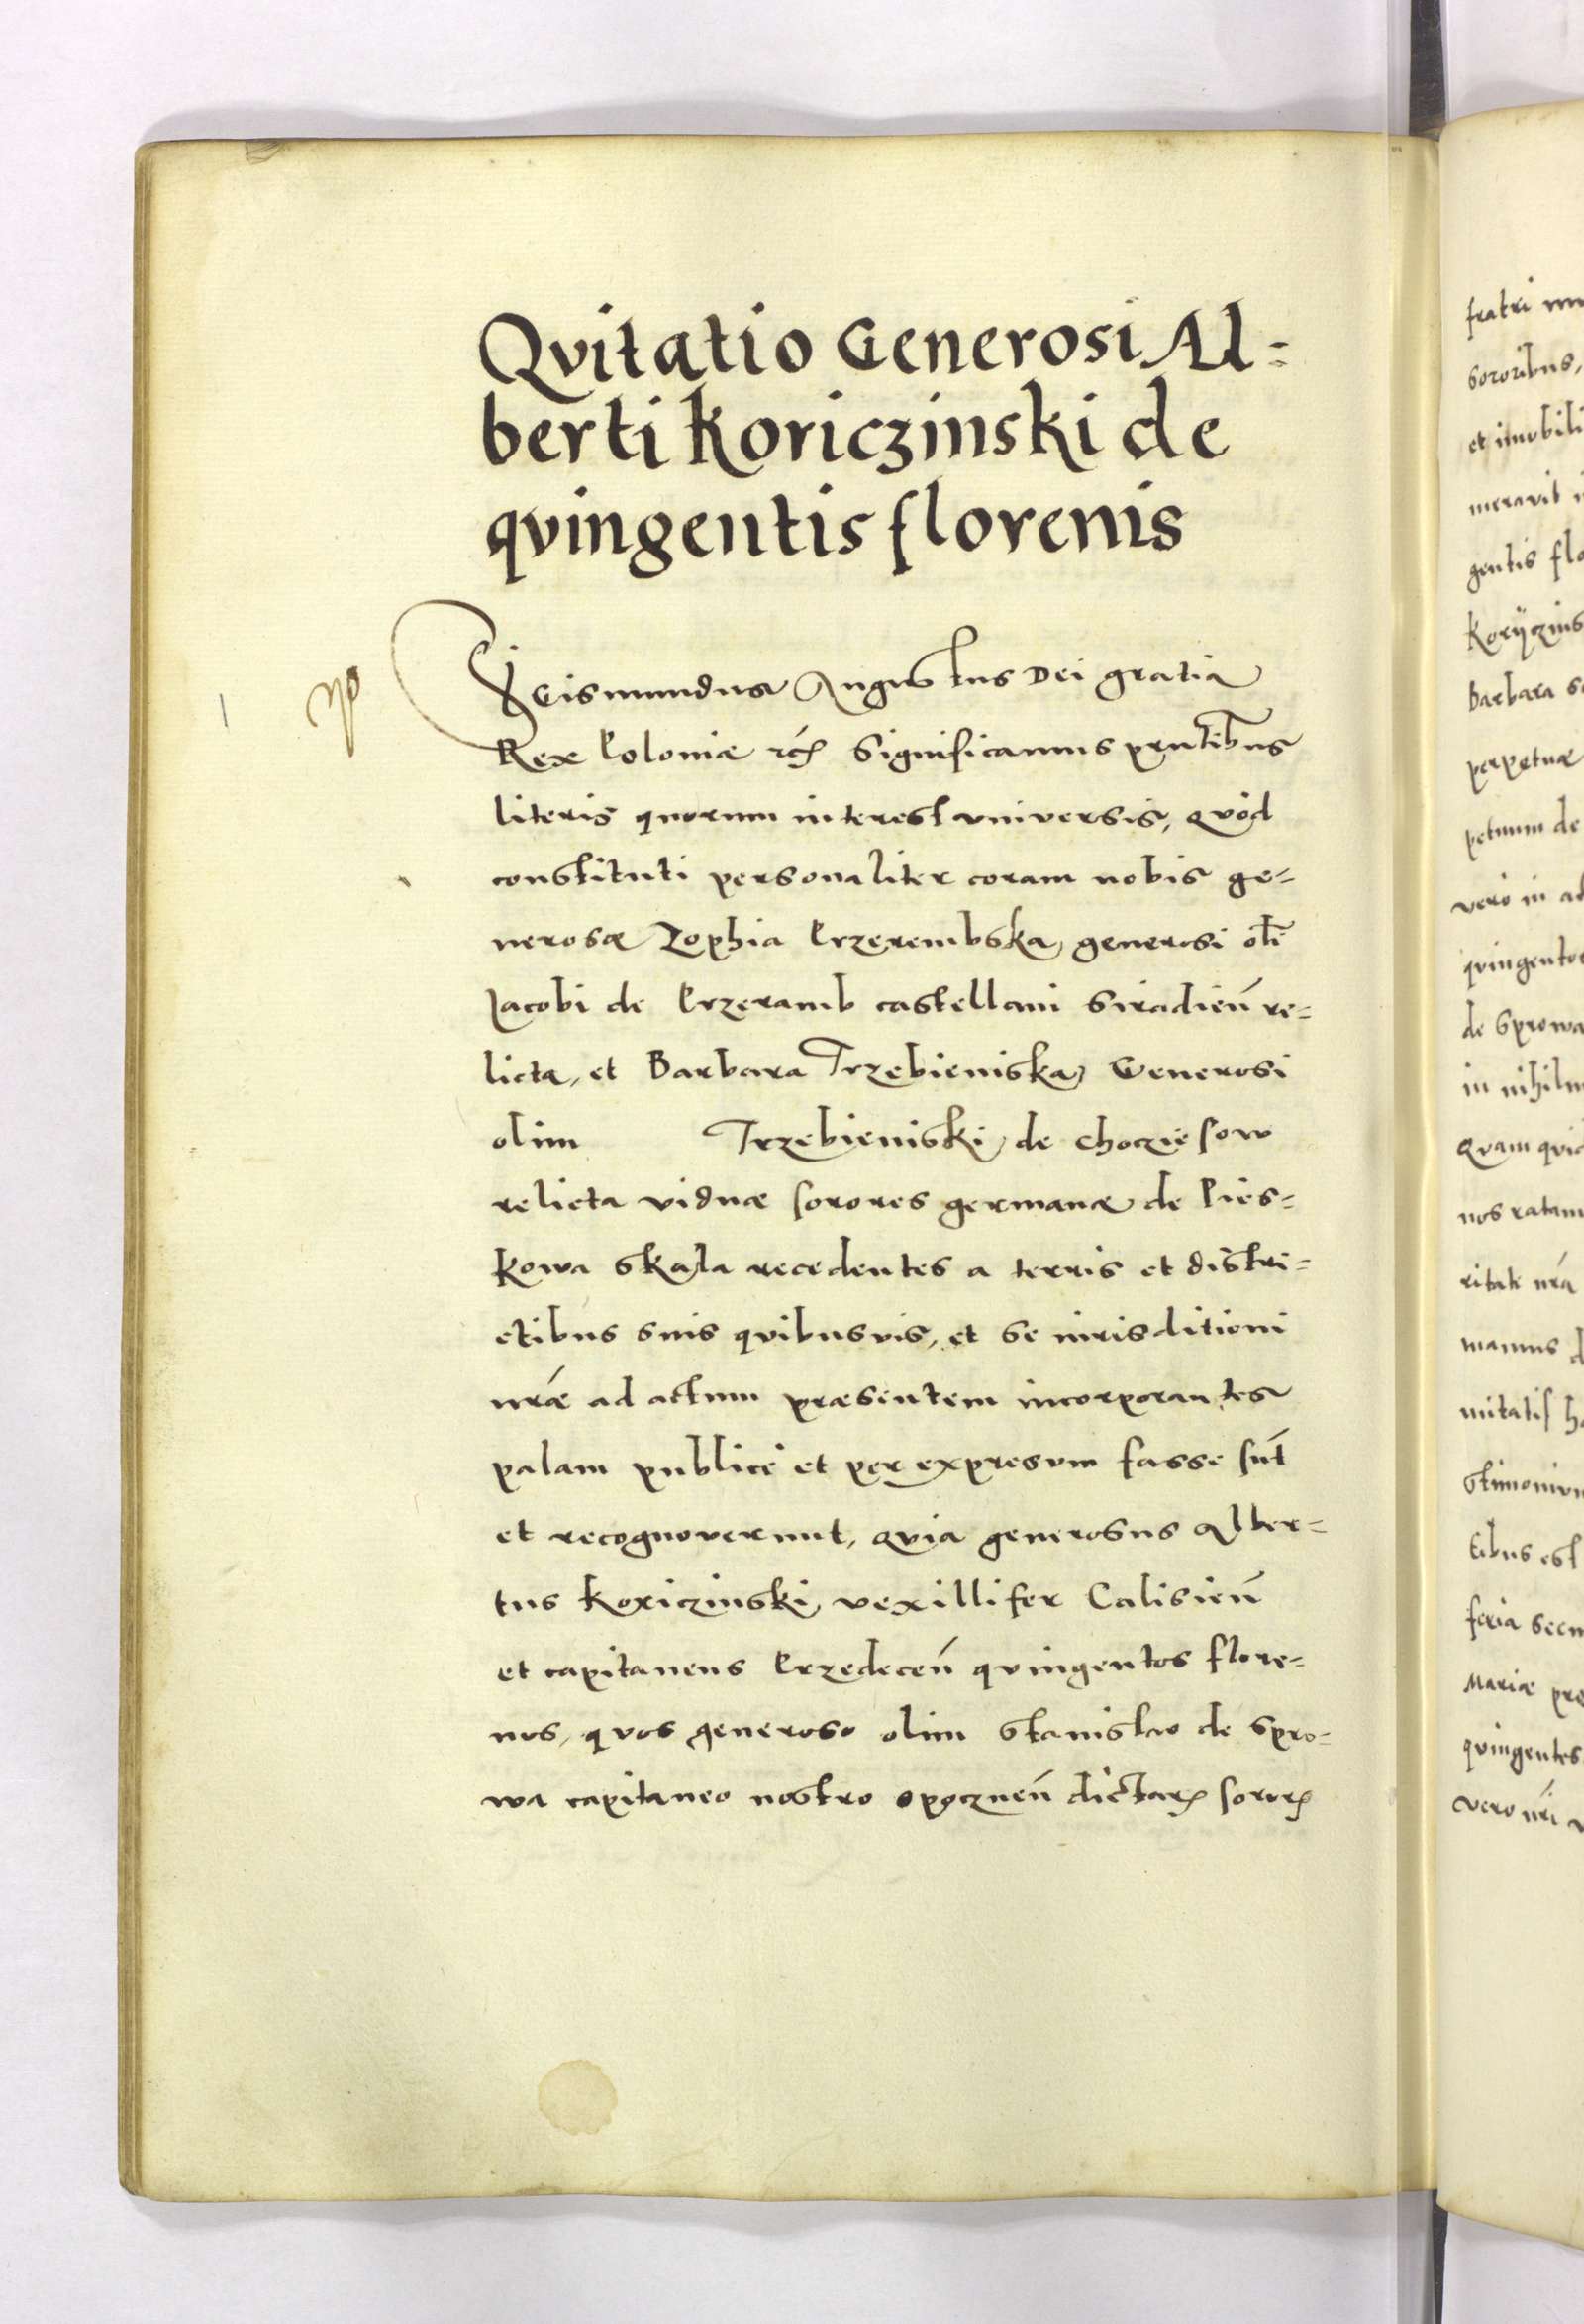 Qvitatio Generosi Al=
berti Koriczinski de
qvingentis florenis
Sigismundus Augustus Dei gratia
Rex Poloniæ etc̃ Significamus pñtibus
literis quorum interest vniversis, Qvòd
constituti personaliter coram nobis ge=
nerosæ Zophia Przerembska, generosi olĩ
Jacobi de Przeramb castellani Siradieñ re=
licta, et Barbara Trzebieniska, Generosi
olim Trzebieniski de Choczięsow
relicta viduæ sorores germanæ de Pies=
kowa skala recedentes a terris et distri=
ctibus suis qvibusvis, et se iurisditioni
nrǽ ad actum præsentem incorporantes
palam publicè et per expresum fasse sũt
et recognoverunt, Qvia generosus Alber=
tus Koriczinski, vexillifer Calisieñ
et capitaneus Przedeceñ qvingentos flore=
nos, qvos generoso olim Stanislao de Spro=
wa capitaneo nostro opoczneñ dictarꝝ sororꝝ
fratri
sororibus,
et imobili
meravit
gentis flo
Koryczins
Barbara
perpetuæ
petuum de
verò in
qvingentos
de Sprowa
in nihilu
Qvam
nos ratam
ritate nrã
manus
nitatis
stimonium
tibus est
feria secu
Mariæ
qvingentes
vero nri